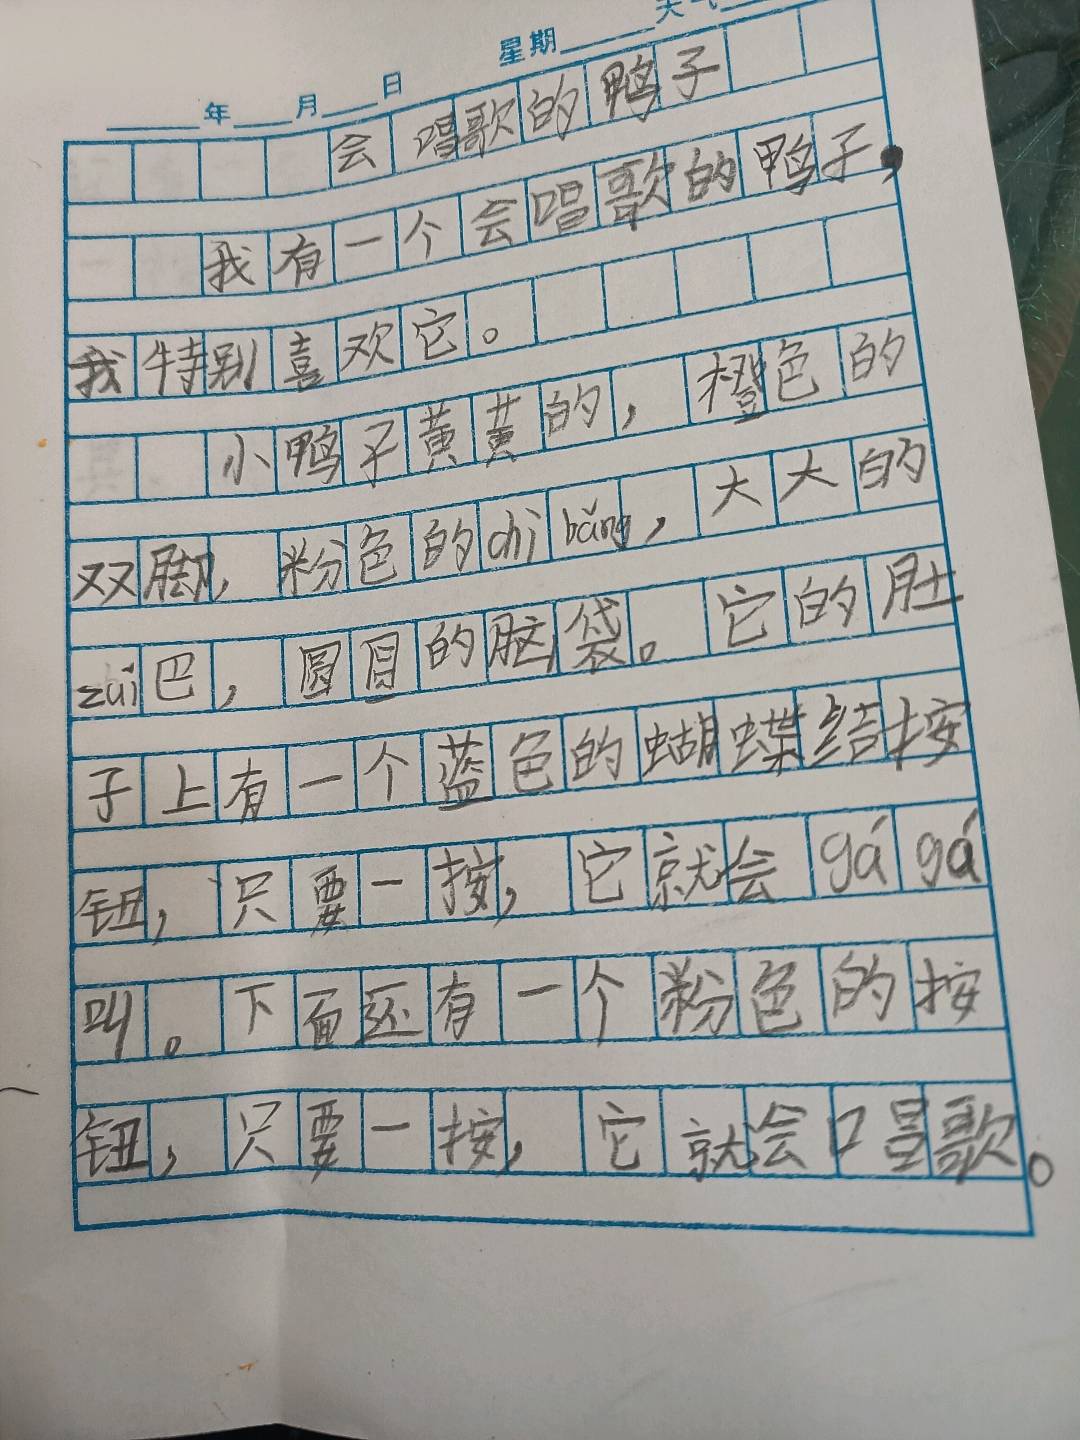 星期____天气
____年____月____日
会唱歌的鸭子
我有一个会唱歌的鸭子,
我特别喜欢它。
小鸭子黄黄的,橙色的
双脚,粉色的chì bǎng,大大的
zuǐ巴,圆目的脑袋。它的肚
子上有一个蓝色的蝴蝶结按
钮,只要一按,它就会gá gá
叫。下面还有一个粉色的按
钮,只要一按,它就会唱歌。